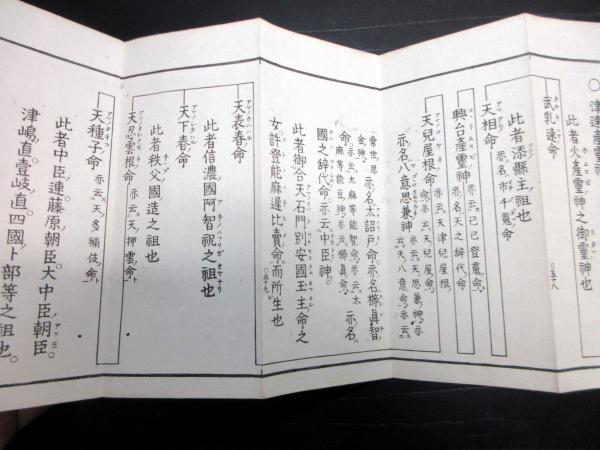 津速産靈神
此者火産靈神之御靈神也
武乳速命
此者添縣主祖也
天相命 亦名市千魔命
興台産靈神 亦云己己登魔命 亦名天之辞代命
天兒屋根命 亦云天津兒屋根命 亦云天兒屋命
亦名八意思兼神 亦云天思兼神 亦云天八意命 亦云
常世思金神 亦名太詔戸命 亦名櫛眞智
命 亦云太麻等能智命 亦云太麻等能豆神 亦云櫛眞命 亦名
國之辞代命 亦云中臣神
此者御合天石門別安國玉主命之
女許登能麻遲比賣命而所生也
天表春命
此者信濃國阿智祝之祖也
天下春命
此者秩父國造之祖也
天忍雲根命 亦云天押雲命
天種子命 亦云天多禰伎命
此者中臣連藤原朝臣大中臣朝臣
津嶋直壹岐直四國卜部等之祖也